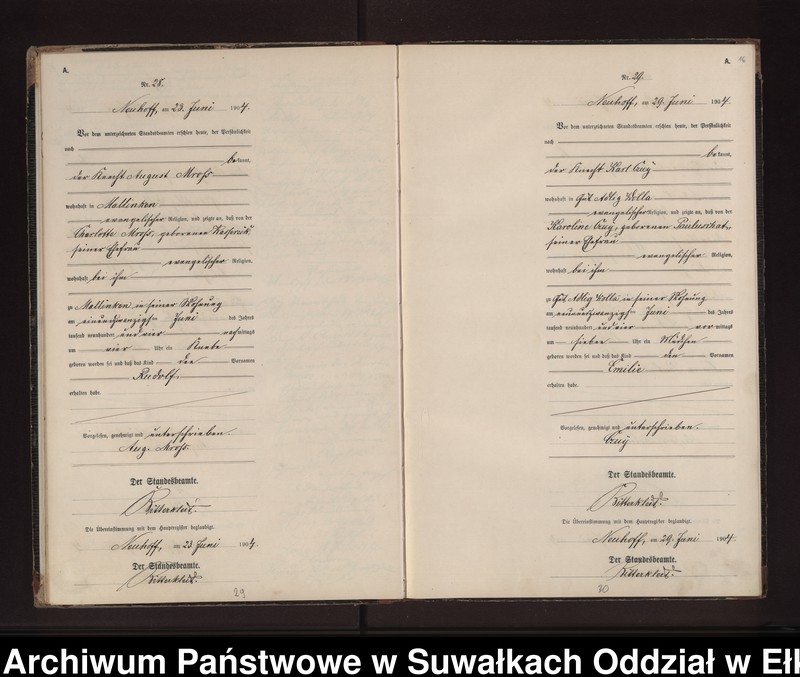 A.
Nr. 28.
Neuhoff, am 23. Juni 1904.
Vor dem unterzeichneten Standesbeamten erschien heute, der Persönlichkeit
nach
bekannt,
der Knecht August Mross
wohnhaft in Mallinken
evangelischer Religion, und zeigte an, daß von der
Charlotte Mross, geborenen
seiner Ehefrau
evangelischer Religion,
wohnhaft bei ihm
zu Mallinken in seiner Wohnung
am einundzwanzigsten Juni des Jahres
tausend neunhundert und vier nachmittags
um vier Uhr ein Knabe
geboren worden sei und daß das Kind den Vornamen
Rudolf
erhalten habe.
Vorgelesen, genehmigt und unterschrieben.
Aug. Mross.
Der Standesbeamte.
Die Übereinstimmung mit dem Hauptregister beglaubigt.
Neuhoff, am 23. Juni 1904.
Der Standesbeamte.
29
A. 16
Nr. 29.
Neuhoff, am 29. Juni 1904.
Vor dem unterzeichneten Standesbeamten erschien heute, der Persönlichkeit
nach
bekannt,
der Knecht Karl
wohnhaft in Gut Adlig Wolla
evangelischer Religion, und zeigte an, daß von der
Karoline geborenen
seiner Ehefrau
evangelischer Religion,
wohnhaft bei ihm
zu Gut Adlig Wolla in seiner Wohnung
am neunundzwanzigsten Juni des Jahres
tausend neunhundert und vier vormittags
um sieben Uhr ein Mädchen
geboren worden sei und daß das Kind den Vornamen
Emilie
erhalten habe.
Vorgelesen, genehmigt und unterschrieben.
Der Standesbeamte.
Die Übereinstimmung mit dem Hauptregister beglaubigt.
Neuhoff, am 29. Juni 1904.
Der Standesbeamte.
30
Archiwum Państwowe w Suwałkach Oddział w Ełk